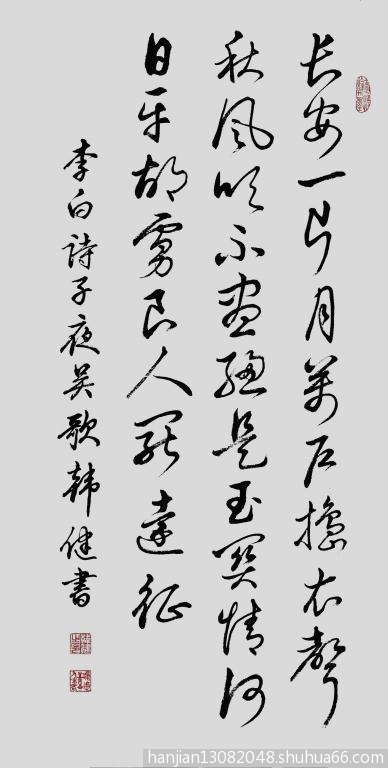 长安一片月萬户擣衣聲
秋風吹不盡總是玉關情何
日平胡虜良人罷遠征
李白詩子夜吴歌韓健書
hanjian13082048.shuhua66.com